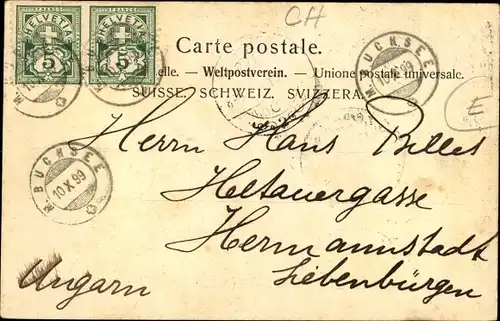 HELVETIA HELVETIA
5 5
CH
Carte postale.
elle. – Weltpostverein. – Unione postale universale.
SUISSE. SCHWEIZ. SVIZZERA.
M. BUCHSEE
10 X 99
E
Herrn Hans Billes
M. BUCHSEE
10 X 99
Heltauergasse
Hermannstadt
Ungarn
Siebenbürgen